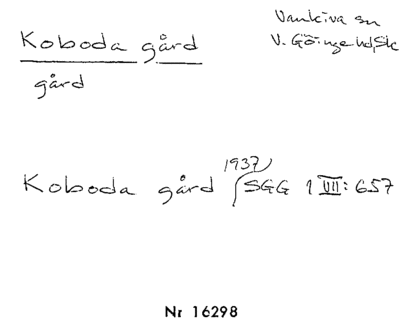 Koboda gård
Vankiva sn
V. Göinge hd, Sk
gård
1937
Koboda gård SGG 1 VII: 657
Nr 16298